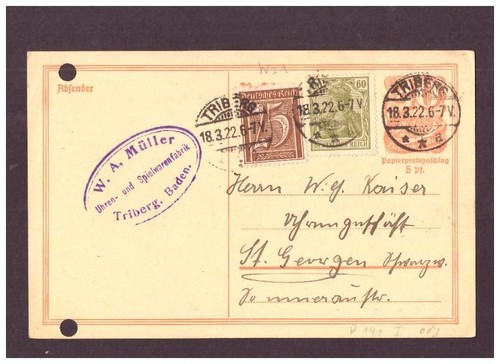 Absender
W. A. Müller
Uhren- und Spielwarenfabrik
Triberg, Baden.
Deutsches Reich
TRIBERG
18.3.22.6-7V.
60
REICH
18.3.22.6-7V.
TRIBERG
18.3.22.6-7V.
a
Papierpreiszuschlag
5 pf.
Herrn W. G. Kaiser
Uhrengeschäft
St. Georgen Schwarzw.
Sommeraustr.